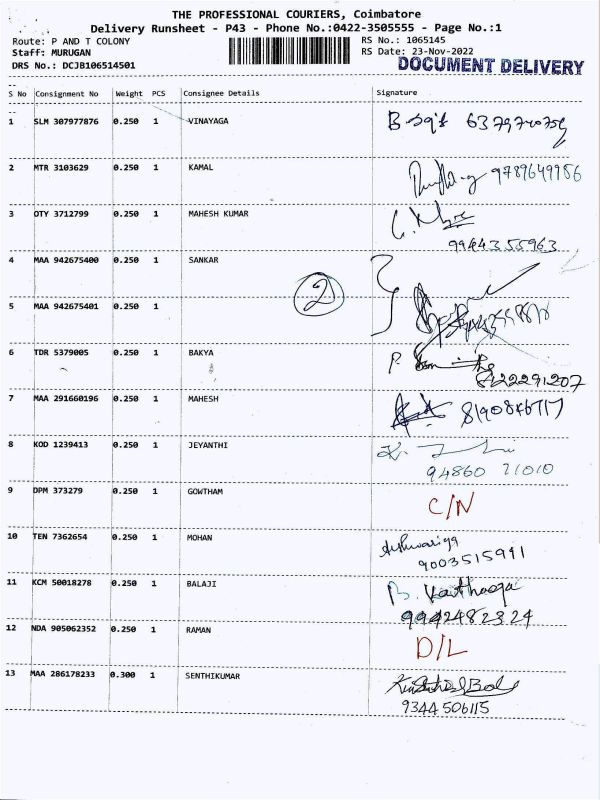 THE PROFESSIONAL COURIERS, Coimbatore
Delivery Runsheet - P43 - Phone No.:0422-3505555 - Page No.:1
Route: P AND T COLONY RS No.: 1065145
Staff: MURUGAN RS Date: 23-Nov-2022
DRS No.: DCJB106514501 DOCUMENT DELIVERY
S No Consignment No Weight PCS Consignee Details Signature
1 SLM 307977876 0.250 1 VINAYAGA
2 MTR 3103629 0.250 1 KAMAL 9789649986
3 OTY 3712799 0.250 1 MAHESH KUMAR
9944355963
4 MAA 942675400 0.250 1 SANKAR
2
5 MAA 942675401 0.250 1
6 TDR 5379005 0.250 1 BAKYA P.
8122291207
7 MAA 291660196 0.250 1 MAHESH
8 KOD 1239413 0.250 1 JEYANTHI K.
94860 71010
9 DPM 373279 0.250 1 GOWTHAM C/N
10 TEN 7362654 0.250 1 MOHAN
9003515991
11 KCM 50018278 0.250 1 BALAJI B.
9942482324
12 NDA 905062352 0.250 1 RAMAN D/L
13 MAA 286178233 0.300 1 SENTHIKUMAR
9344506115